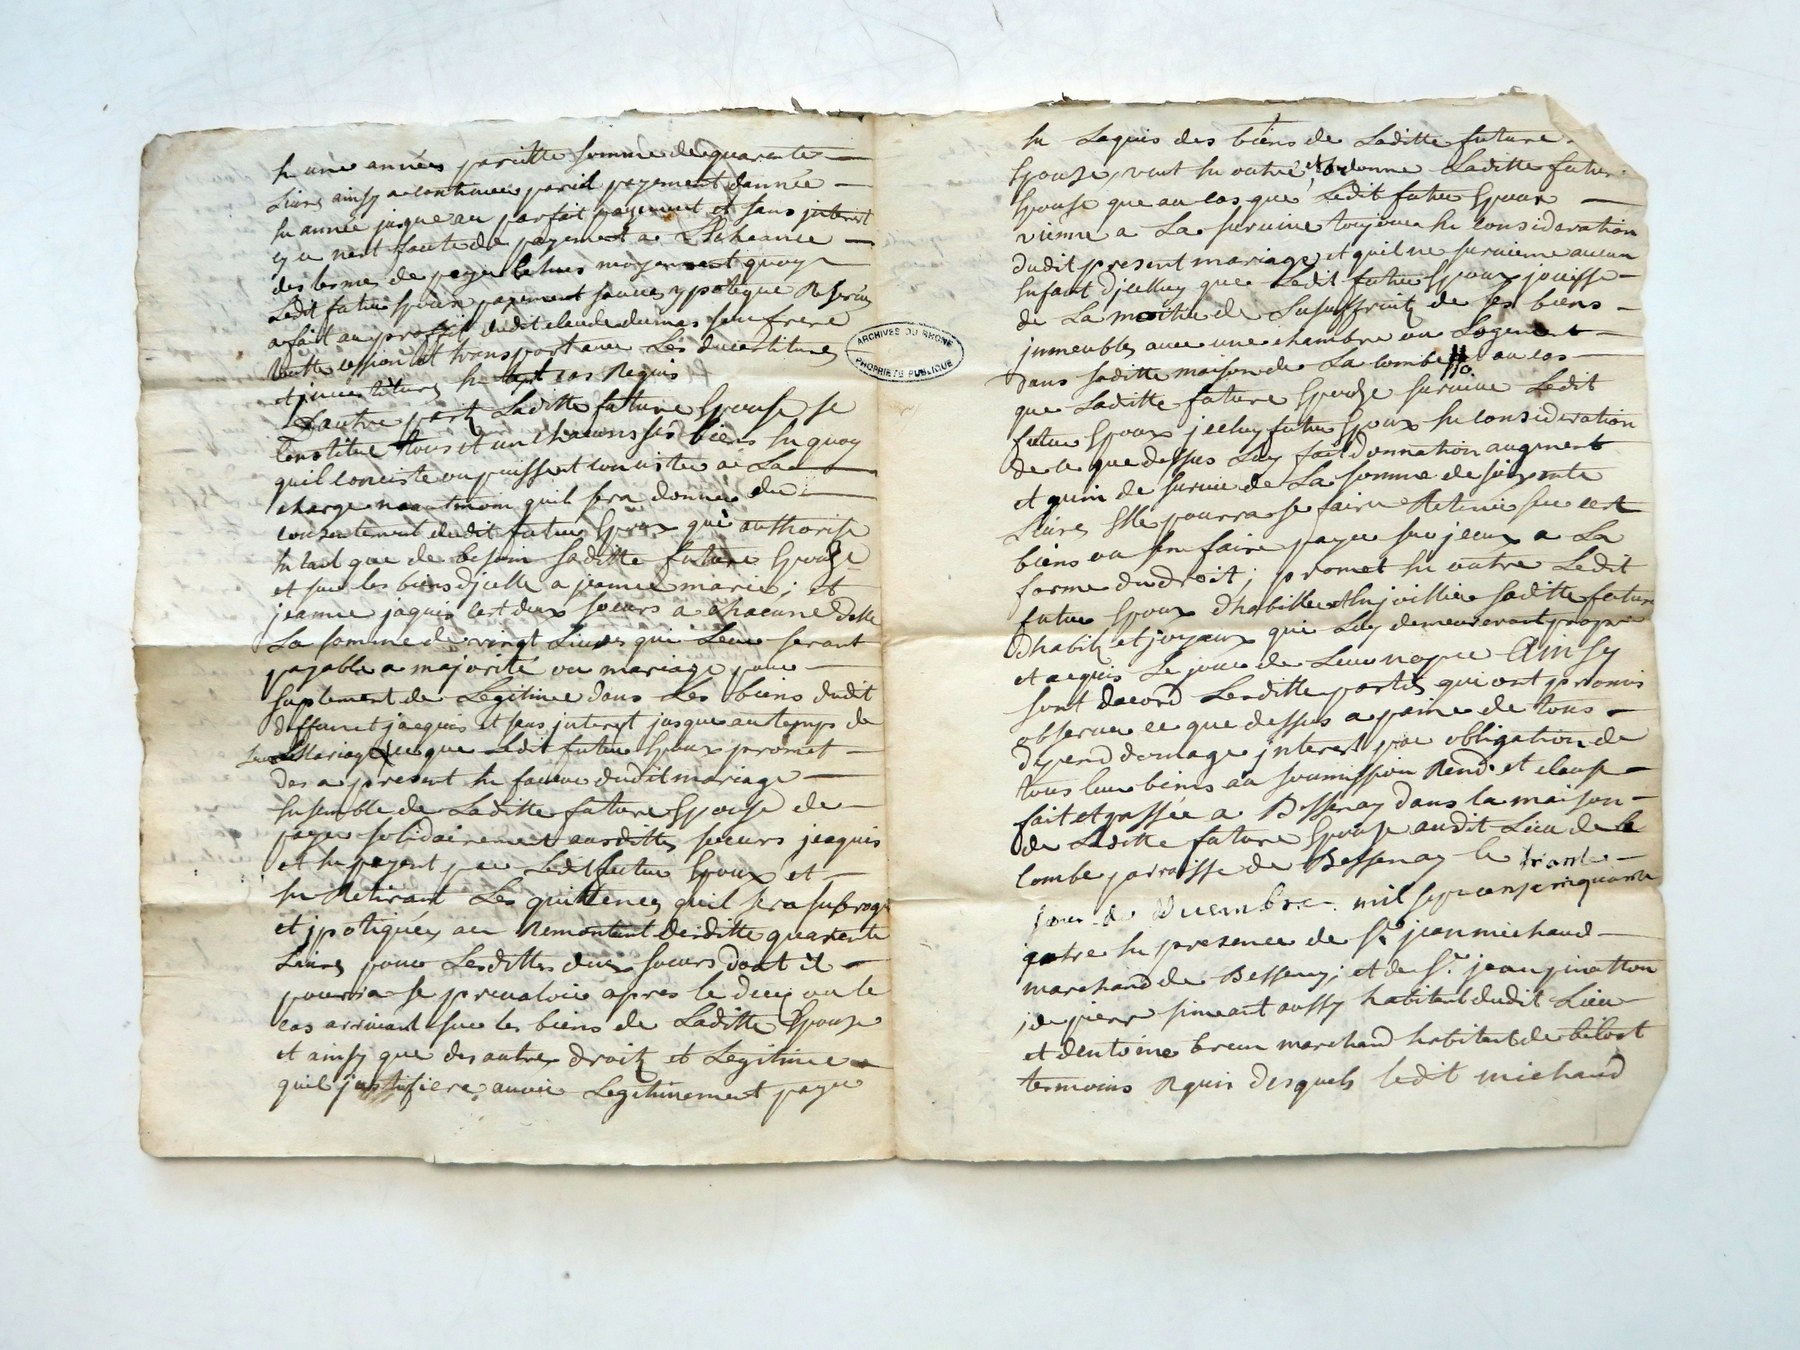 en une année pareille somme de quarante
Livres ainsy a continuer pareil payement dannée
en année jusque au parfait payement et sans interest
sy ce nest faute de payement a Lécheance
des termes de payer moyennant quoy
Ledit futur Epoux payement sauver ypoteque Reservée
a fait au proffit dudit claude dumas son frere
toutte cession et transport avec Les devestitures
et investitures en tel cas Requis
Dautre part Laditte future Epouse se
Constitue tous et un chacuns ses biens en quoy
quil conciste ou puissent concister a La
charge neantmoin quil sera donnée du
consentement dudit futur Epoux qui authorise
en tant que de besoin saditte future Epouse
et sur les biens dicelle a jeanne marie; et
jeanne jaquis ces deux soeurs a chacune delle
La somme de vingt Livres qui Leur seront
payable a majorité ou mariage pour
suplement de Legitime dans Les biens dudit
deffunt jacquis et sans interest jusque au temps de
Leur Mariage ce que Ledit futur Epoux promet
des a present en faveur dudit mariage
ensemble de Laditte future Epouse de
payer solidairement ausdittes soeurs jacquis
et en payant par Ledit futur Epoux et
en Retirant Les quittences quil sera subrogé
et ypotiquée au Remontant desditte quarente
Livres pour Lesdittes deux soeurs dont il
pourra se prevaloir apres le deces ou le
cas arrivant sur les biens de Laditte Epouse
et ainsy que des autres droits et Legitime
quil justifiera avoir Legitimement payé
ARCHIVES DU RHONE
PROPRIETE PUBLIQUE
en Laquis des biens de Laditte future
Epouse, veut en outre et ordonne Laditte future
Epouse que au cas que Ledit futur Epoux
vienne a La survivre toujours en consideration
dudit present mariage et quil ne survienne aucun
Enfant dicelluy que Ledit futur Epoux jouisse
de La moitié de Lusuffruit de ses biens
immeubles avec une chambre ou Logement
dans saditte maison de La combe au cas
que Laditte future Epouze survive Ledit
futur Epoux jcelluy futur Epoux en consideration
de ce que dessus Luy fait donnation augment
et guin de survie de La somme de soixante
Livres Elle pourra se faire Retenir sur cest
biens ou sen faire payer sur jceux a La
forme du droit; promet en outre Ledit
futur Epoux dhabiller et Enjoillier saditte future
dhabits et joyaux qui Luy demeureront propre
et acquis Le jour de Leur nopce Ainsy
sont dacord Lesditte parties qui ont promis
observer ce que dessus a paine de tous
depend domage interest par obligation de
tous leur biens au soumission Rend. et clause
fait et passée a Bessenay dans la maison
de Laditte future Epouse audit Lieu de la
combe parroisse de Bessenay le trante
jour de decembre mil sept cens cinquante
quatre en presence de Sr. jean michaud
marchand de Bessenay; et de Sr. jean pinatton
de pierre simeant aussy habitant dudit Lieu
et dentoine breun marchand habitant de bibost
temoins Requis desquels ledit michaud